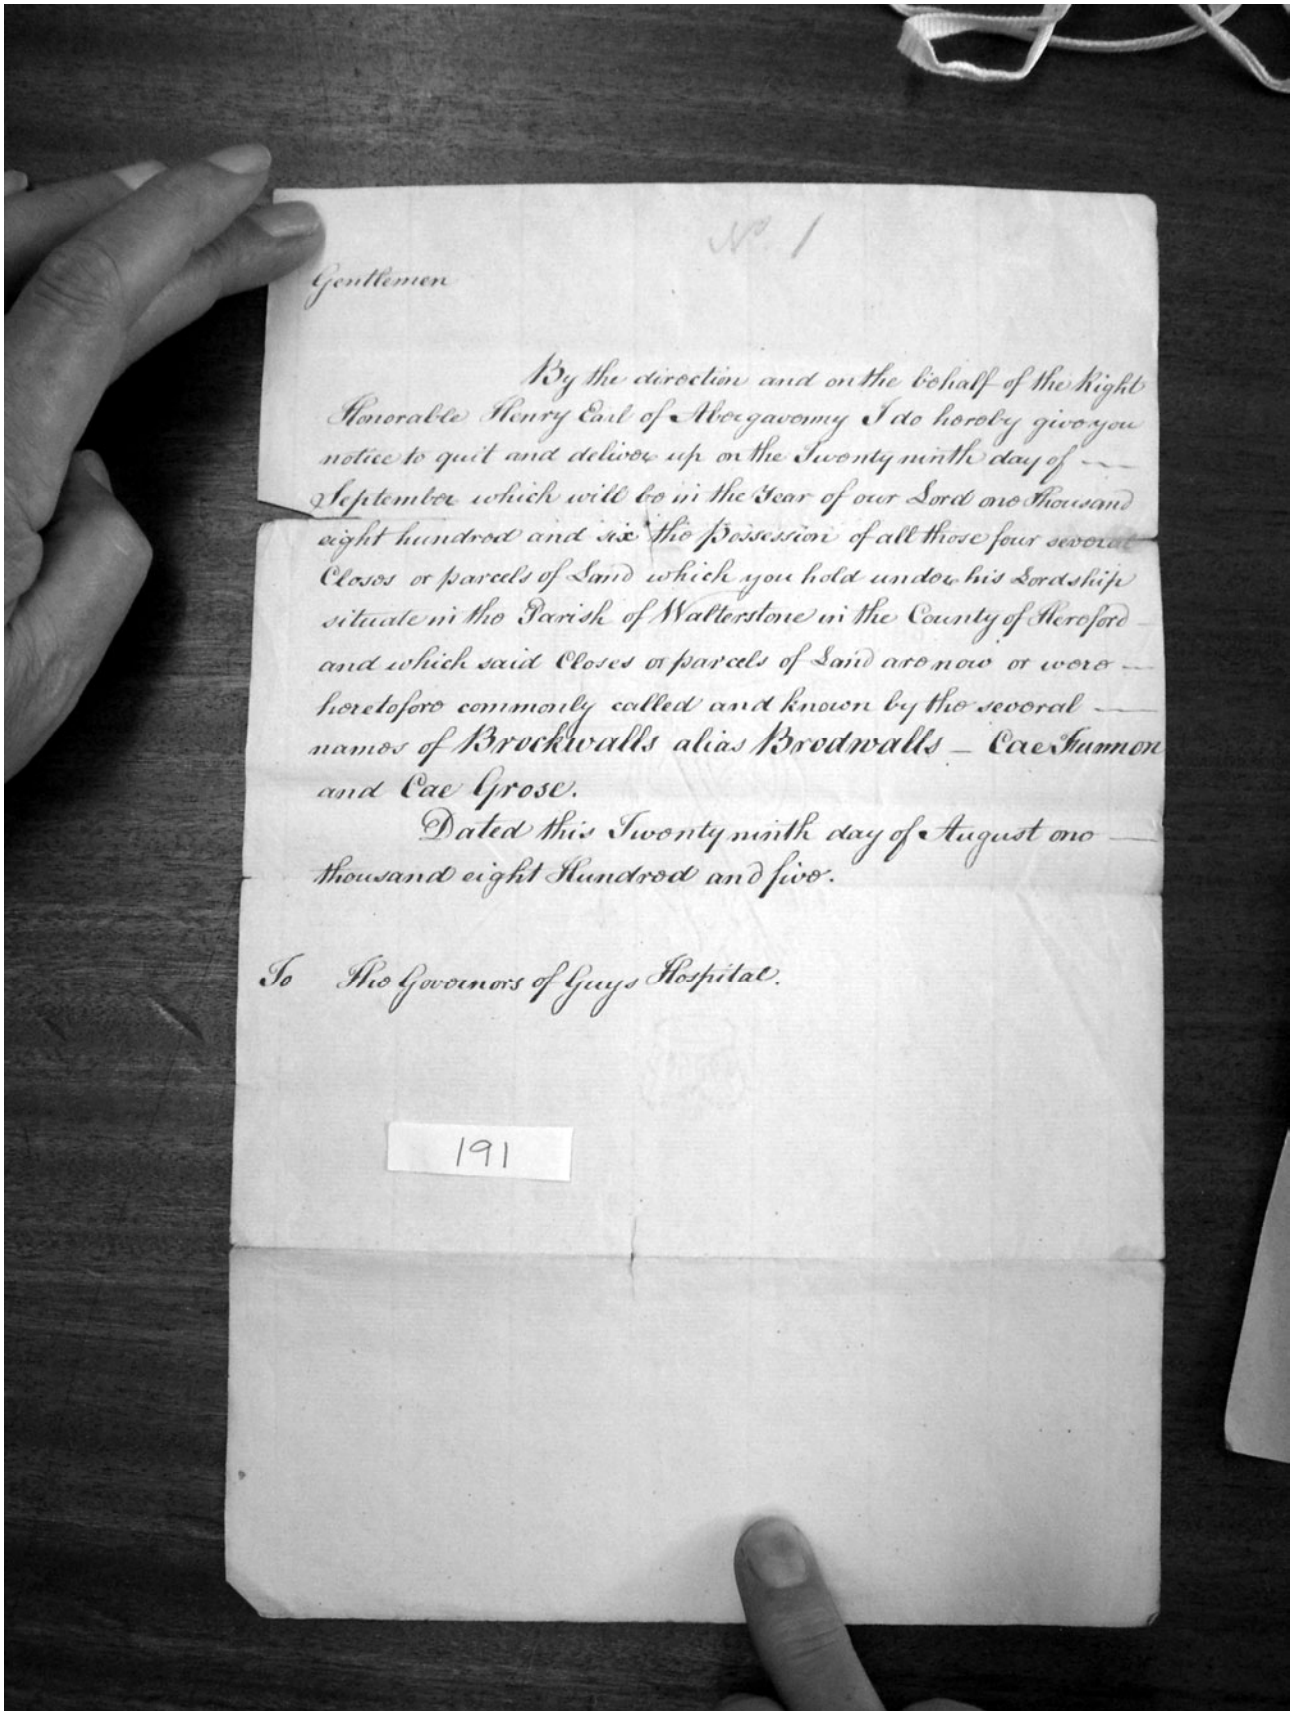 No. 1
Gentlemen
By the direction and on the behalf of the Right
Honorable Henry Earl of Abergavenny I do hereby give you
notice to quit and deliver up on the Twenty ninth day of —
September which will be in the Year of our Lord one Thousand
eight hundred and six the Possession of all those four several
Closes or parcels of Land which you hold under his Lordship
situate in the Parish of Walterstone in the County of Hereford
and which said Closes or parcels of Land are now or were —
heretofore commonly called and known by the several —
names of Brockwalls alias Brodwalls — Cae Funnon
and Cae Grose.
Dated this Twenty ninth day of August one —
thousand eight Hundred and five.
To The Governors of Guys Hospital.
191